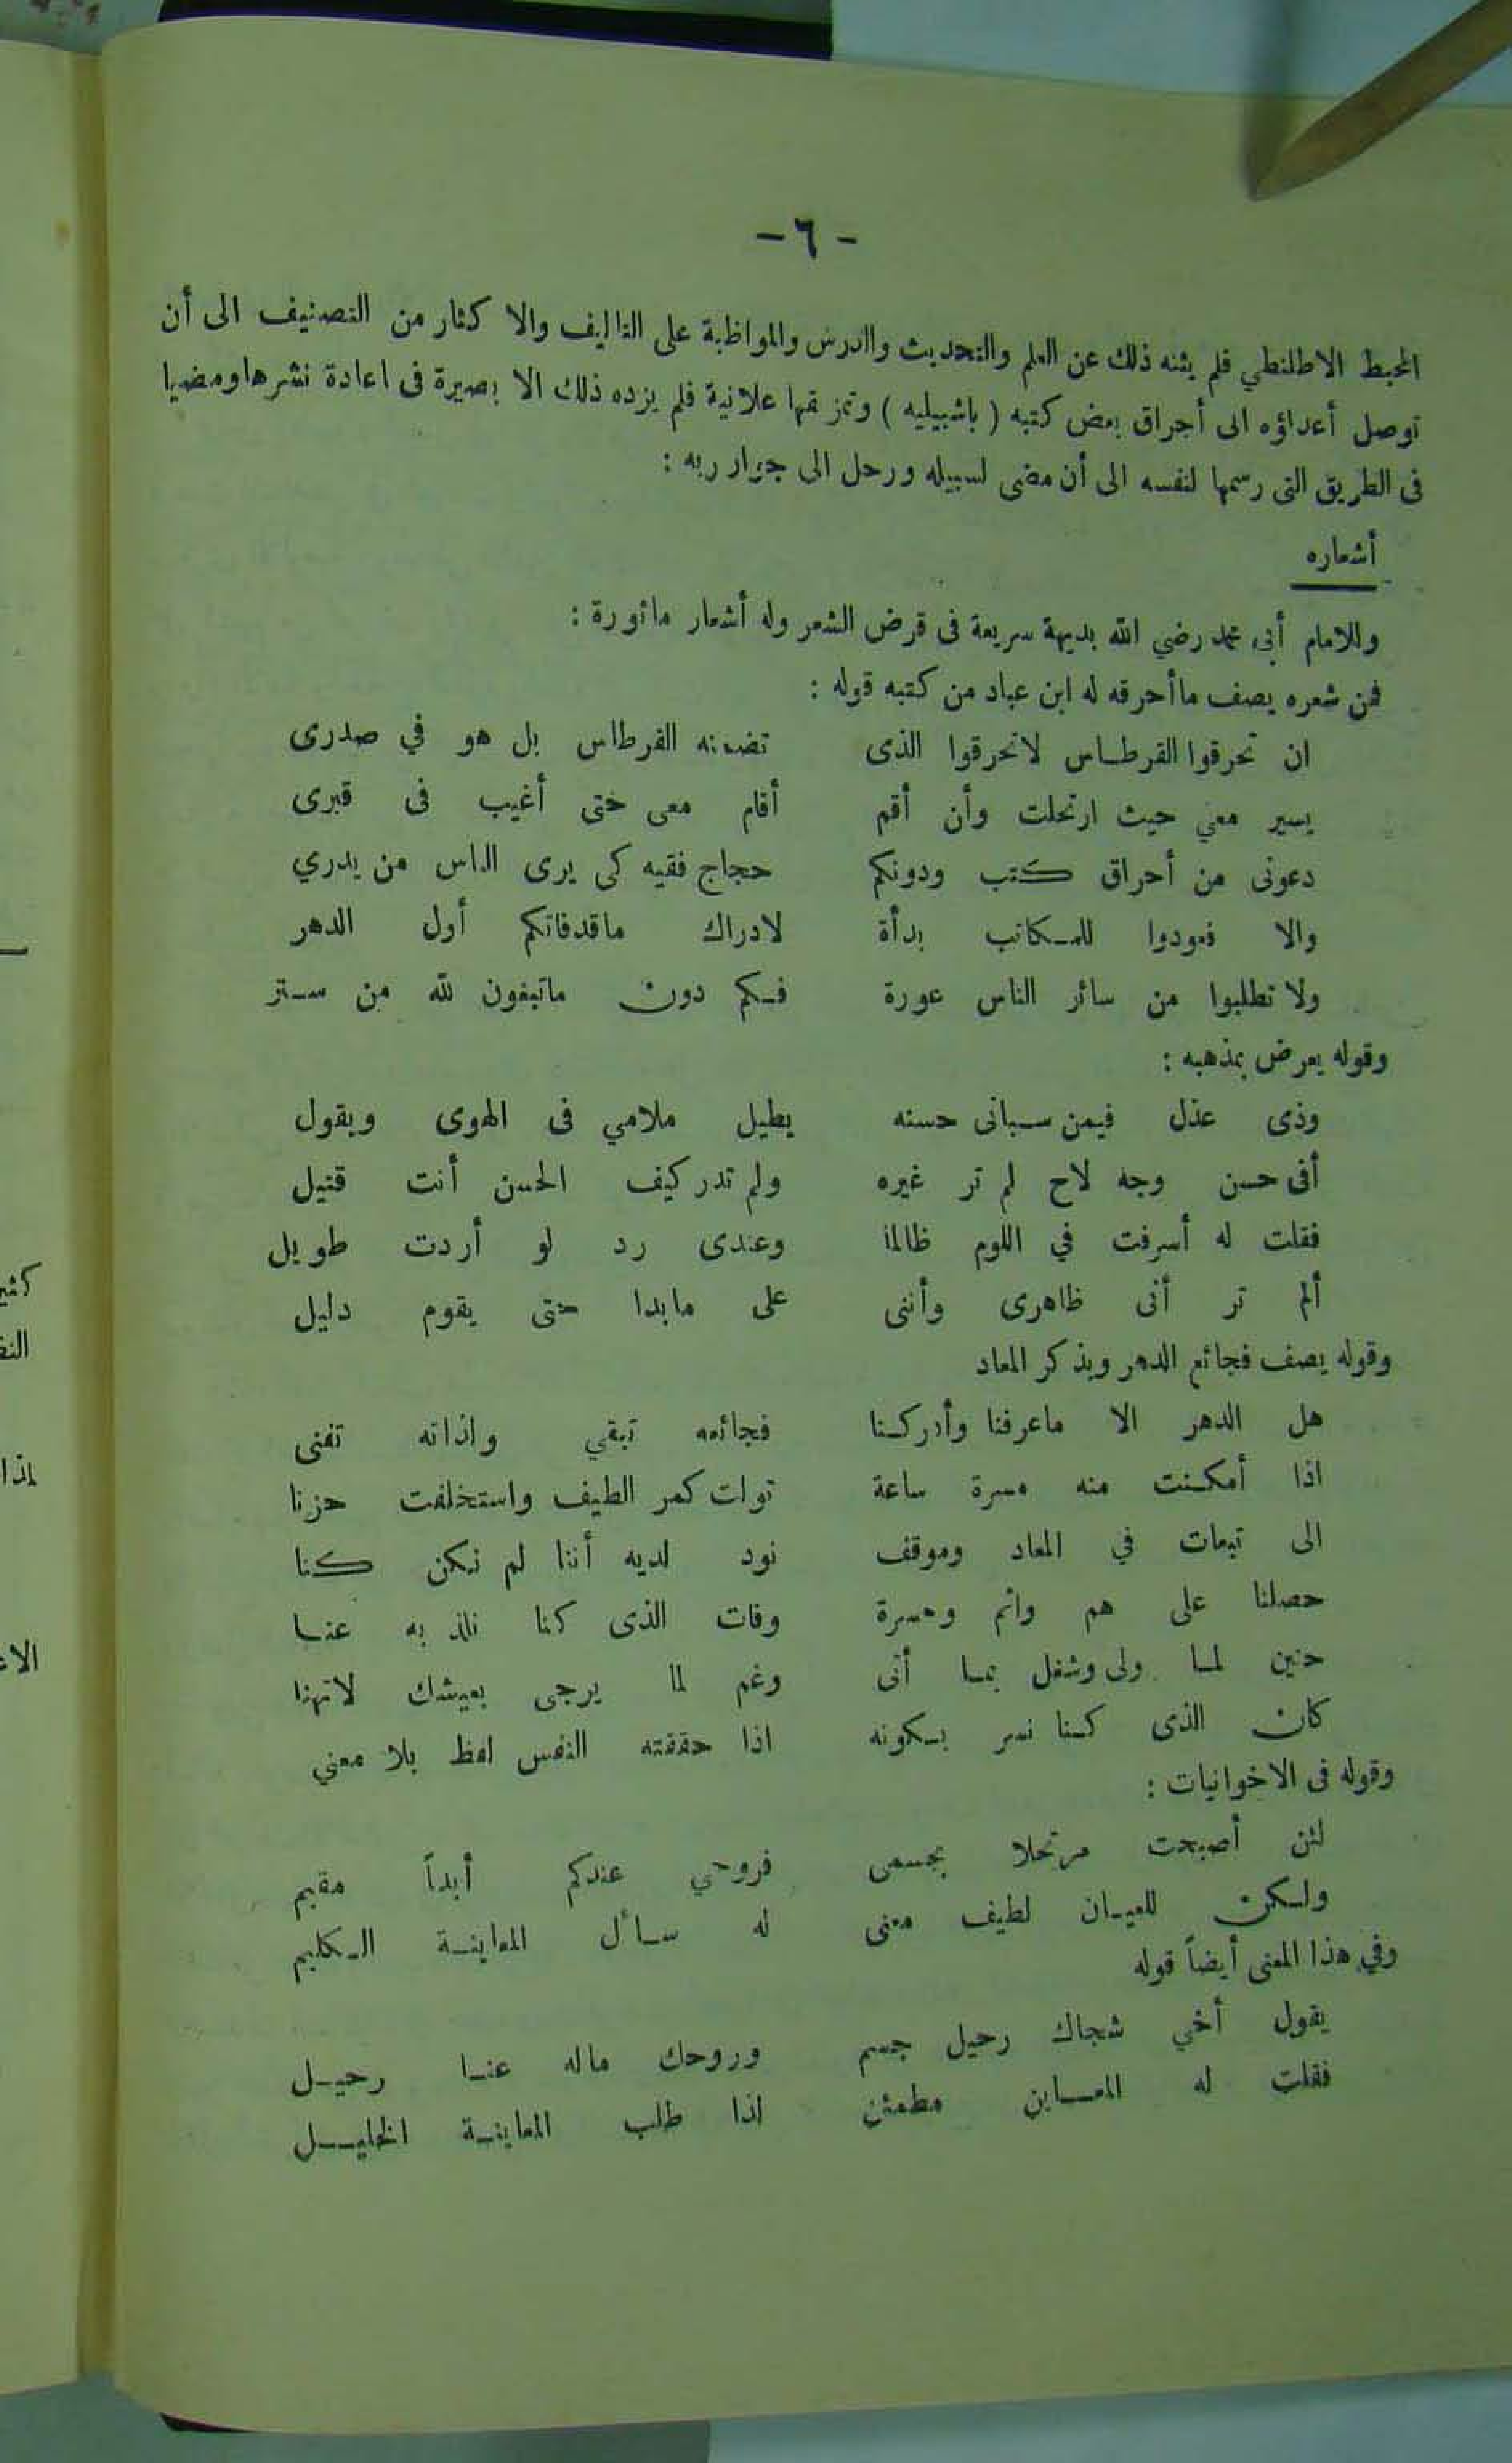 - ٦ -
المحيط الاطلنطي فلم يثنه ذلك عن العلم والتحديث والدرس والمواظبة على التاليف والا كثار من التصنيف الى أن
توصل أعداؤه الى أحراق بعض كتبه ( باشبيليه ) وتمزيقها علانية فلم يزده ذلك الا بصيرة فى اعادة نشرها ومضيا
فى الطريق التى رسمها لنفسه الى أن مضى لسبيله ورحل الى جوار ربه :
أشعاره
وللامام أبى محمد رضي الله بديهة سريعة فى قرض الشعر وله أشعار مأثورة :
فمن شعره يصف ماأحرقه له ابن عباد من كتبه قوله :
ان تحرقوا القرطاس لاتحرقوا الذى تضمنه القرطاس بل هو في صدرى
يسير معي حيث ارتحلت وأن أقم أقام معى حتى أغيب فى قبرى
دعونى من أحراق كتب ودونكم حجاج فقيه كى يرى الناس من يدري
والا فعودوا للمكاتب بدأة لادراك ماقدفاتكم أول الدهر
ولا تطلبوا من سائر الناس عورة فكم دون ماتبغون لله من ستر
وقوله يعرض بمذهبه :
وذى عذل فيمن سبانى حسنه يطيل ملامي فى الهوى ويقول
أفى حسن وجه لاح لم تر غيره ولم تدر كيف الحسن أنت قتيل
فقلت له أسرفت في اللوم ظالما وعندى رد لو أردت طويل
ألم تر أنى ظاهرى وأننى على مابدا حتى يقوم دليل
وقوله يصف فجائع الدهر ويذكر المعاد
هل الدهر الا ماعرفنا وأدركنا فجائعه تبقي ولذاته تفنى
اذا أمكنت منه مسرة ساعة تولت كمر الطيف واستخلفت حزنا
الى تبعات في المعاد وموقف نود لديه أننا لم نكن كنا
حصلنا على هم واثم وحسرة وفات الذى كنا نلذ به عنا
حنين لما ولى وشغل بما أتى وغم لما يرجى بعيشك لاتهنا
كان الذى كنا نسر بكونه اذا حققته النفس لفظ بلا معني
وقوله فى الاخوانيات :
لئن أصبحت مرتحلا بجسمى فروحي عندكم أبداً مقيم
ولكن للعيان لطيف معنى له سأل المعاينة الكليم
وفي هذا المعنى أيضاً قوله
يقول أخي شجاك رحيل جسم وروحك ماله عنا رحيل
فقلت له المعاين مطمئن اذا طلب المعاينة الخليل